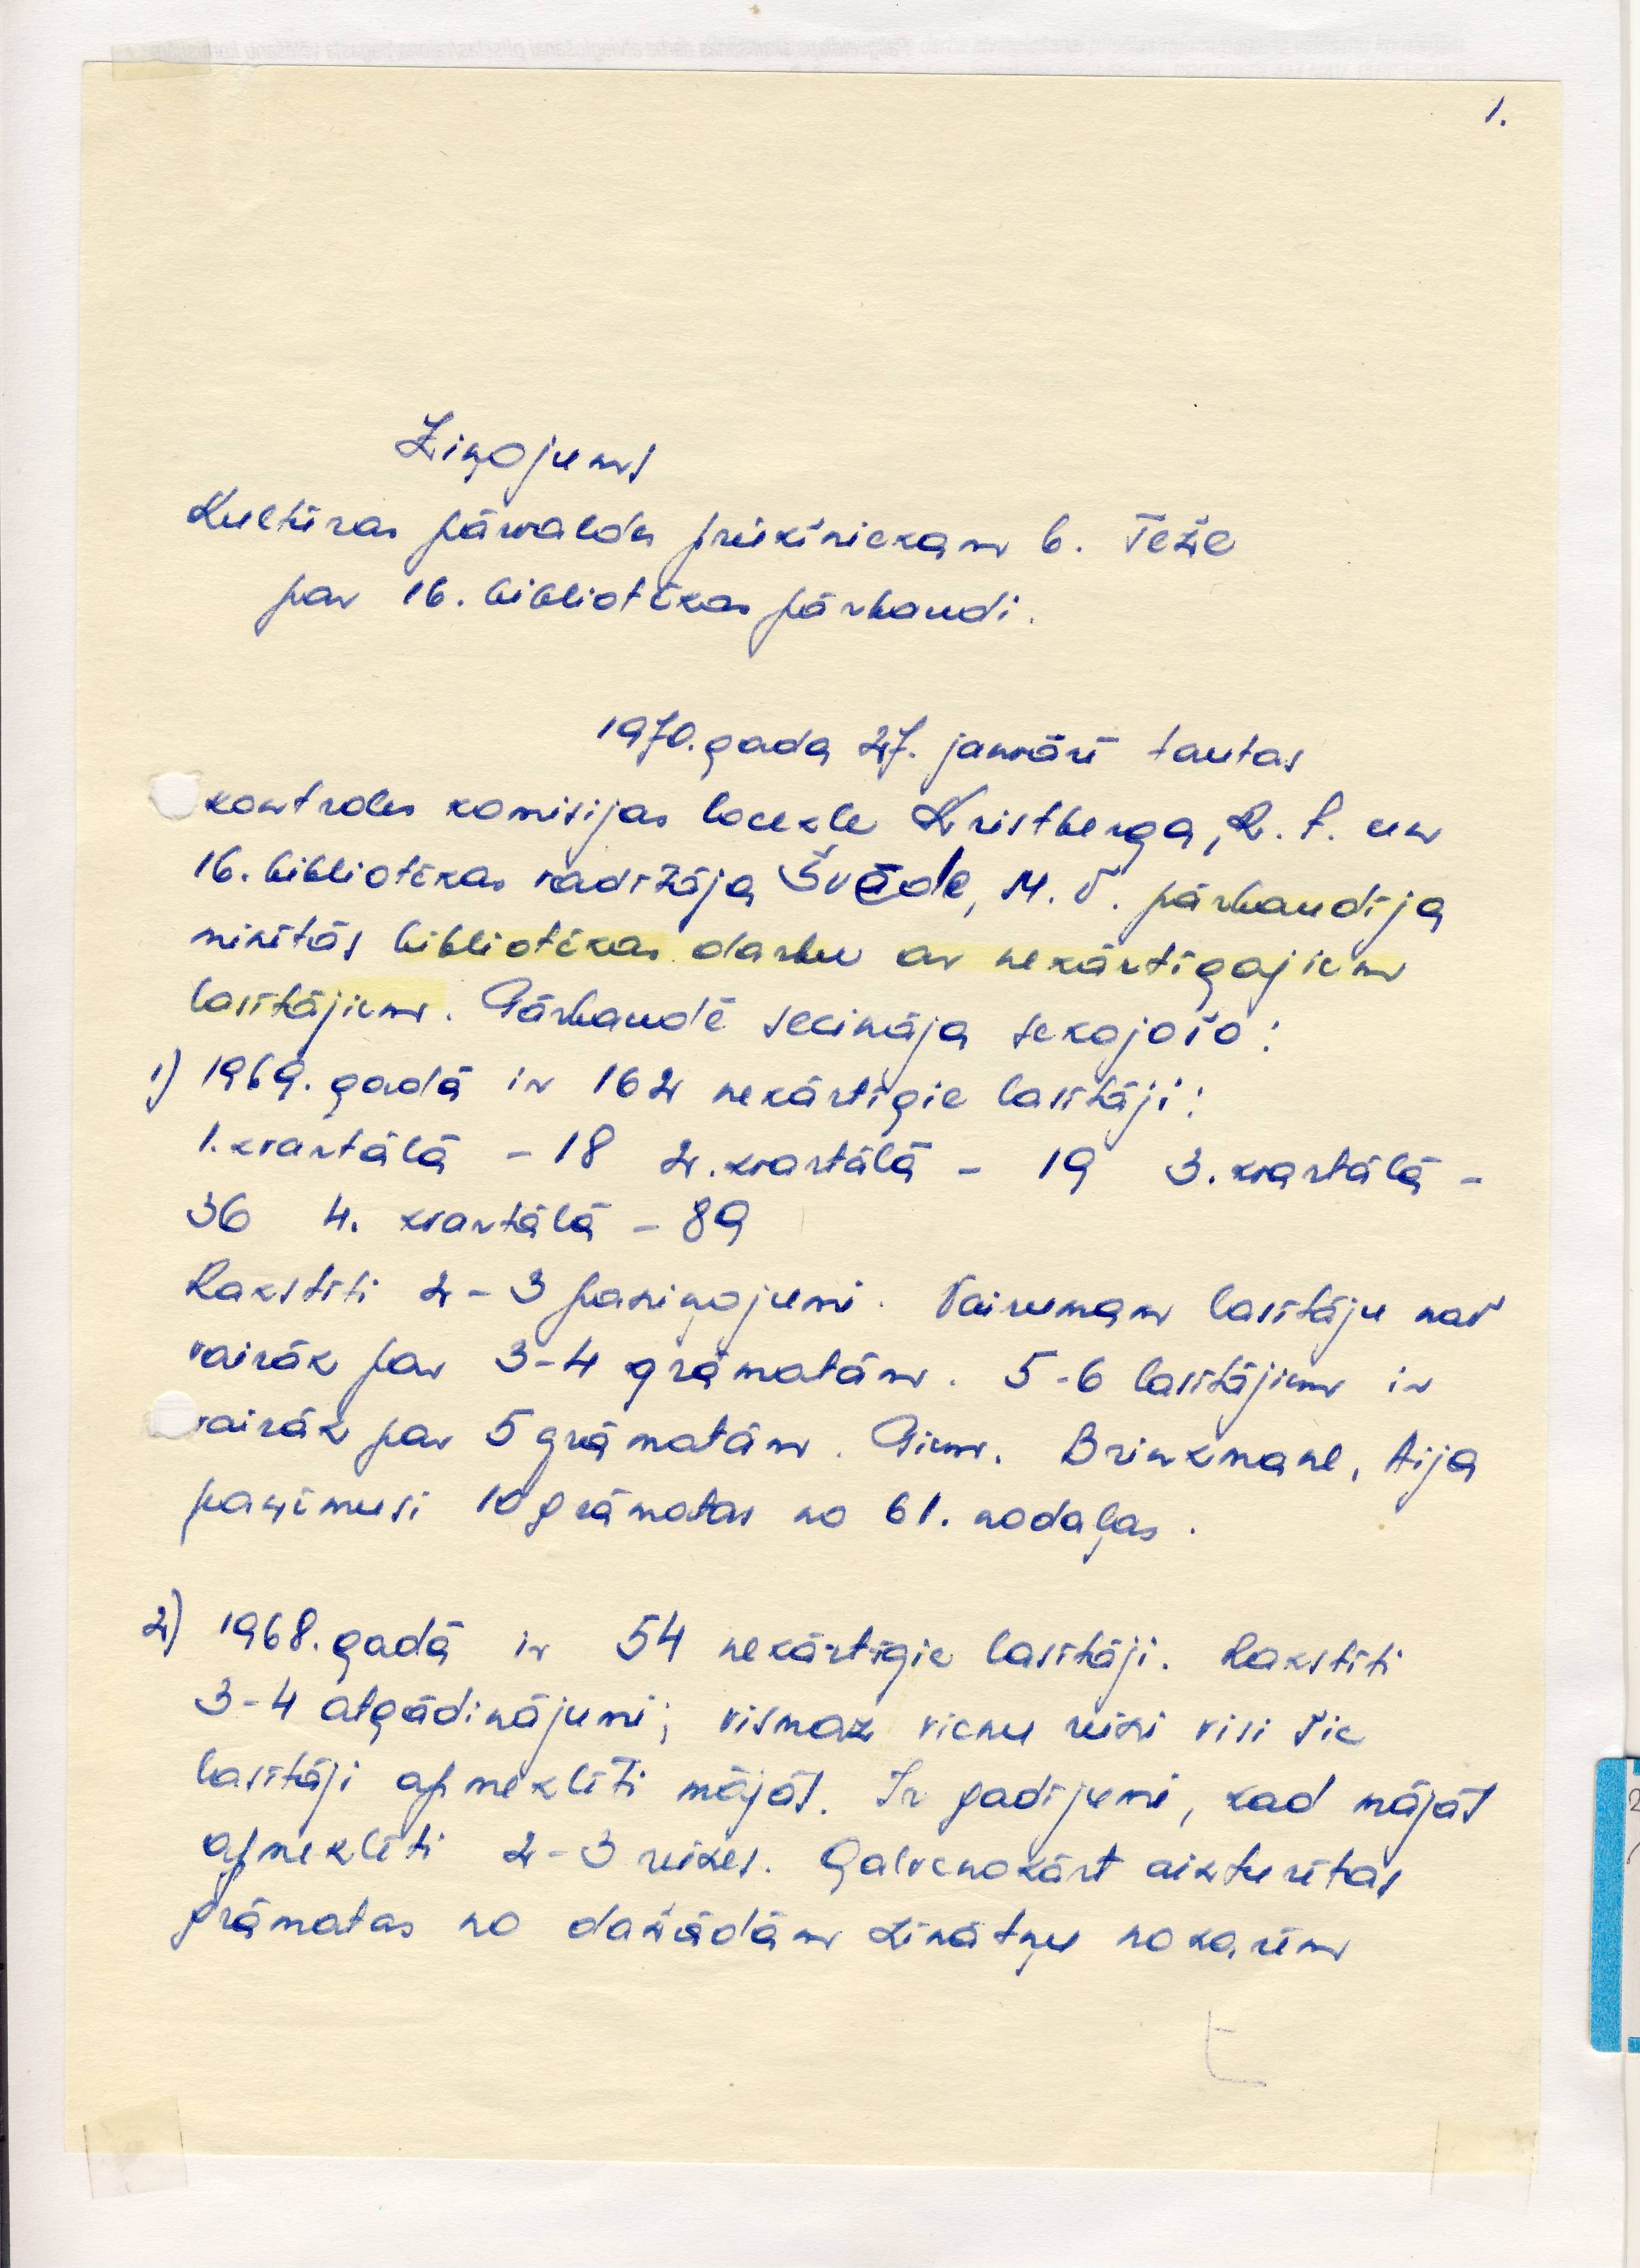 1.
Ziņojums
Kultūras pārvaldes priekšniekam b. Teže
par 16. bibliotēkas pārbaudi.
1970. gada 27. janvārī tautas
kontroles komisijas locekle Kristberga, R. P. un
16. bibliotēkas vadītāja Švēde, M. J. pārbaudīja
minētās bibliotēkas darbu ar nekārtīgajiem
lasītājiem. Pārbaudē secināja sekojošo:
1) 1969. gadā ir 162 nekārtīgie lasītāji:
1. kvartālā - 18 2. kvartālā - 19 3. kvartālā -
36 4. kvartālā - 89
Rakstīti 2-3 paziņojumi. Vairumam lasītāju nav
vairāk par 3-4 grāmatām. 5-6 lasītājiem ir
vairāk par 5 grāmatām. Piem. Brinkmane, Aija
paņēmusi 10 grāmatas no 61. nodaļas.
2) 1968. gadā ir 54 nekārtīgie lasītāji. Rakstīti
3-4 atgādinājumi; vismaz vienu reizi visi šie
lasītāji apmeklēti mājās. Ir gadījumi, kad mājās
apmeklēti 2-3 reizes. Galvenokārt aizturētas
grāmatas no dažādām zinātņu nozarēm